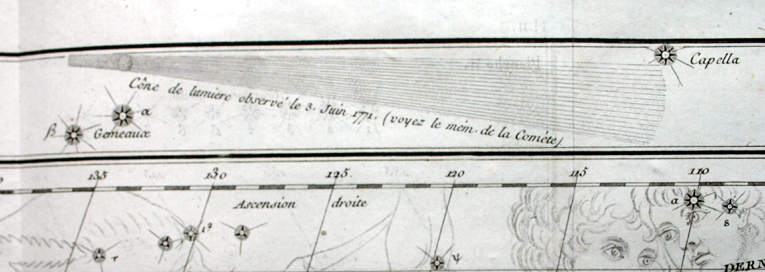 Capella
Cône de lumiere observé le 8. Juin 1771. (voyez le mém. de la Cométe)
α
β Gemeaux
135 130 125 120 115 110
Ascension droite
α
τ
ψ
DERN